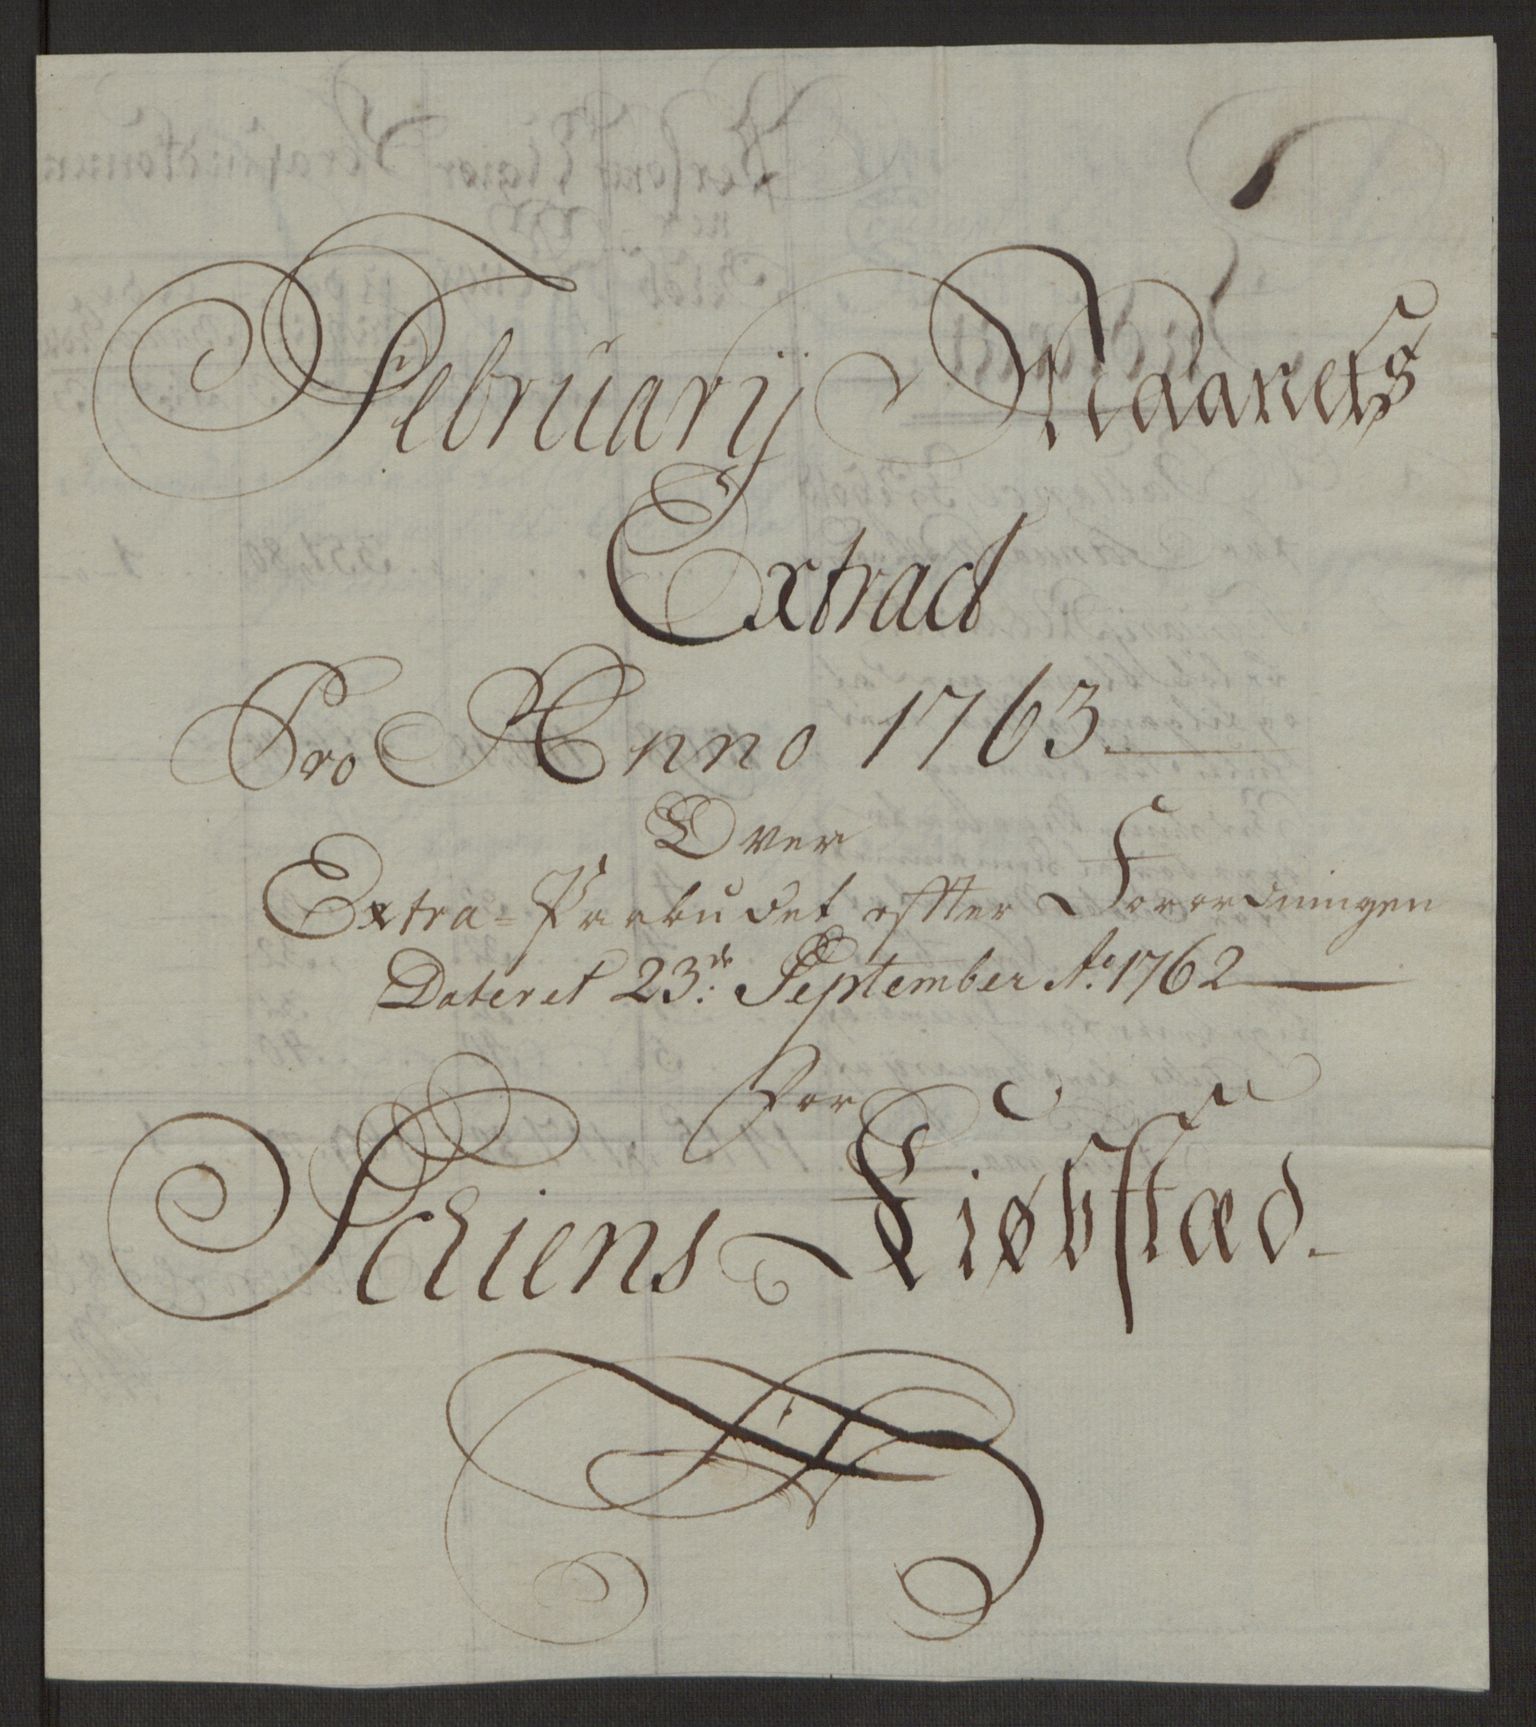 Februarij Maanets
Extract
Pro Anno 1763
Over
Extra-Paabudet effter Forordningen
Dateret 23de September Ao. 1762
For
Schiens Kiøbstæd.